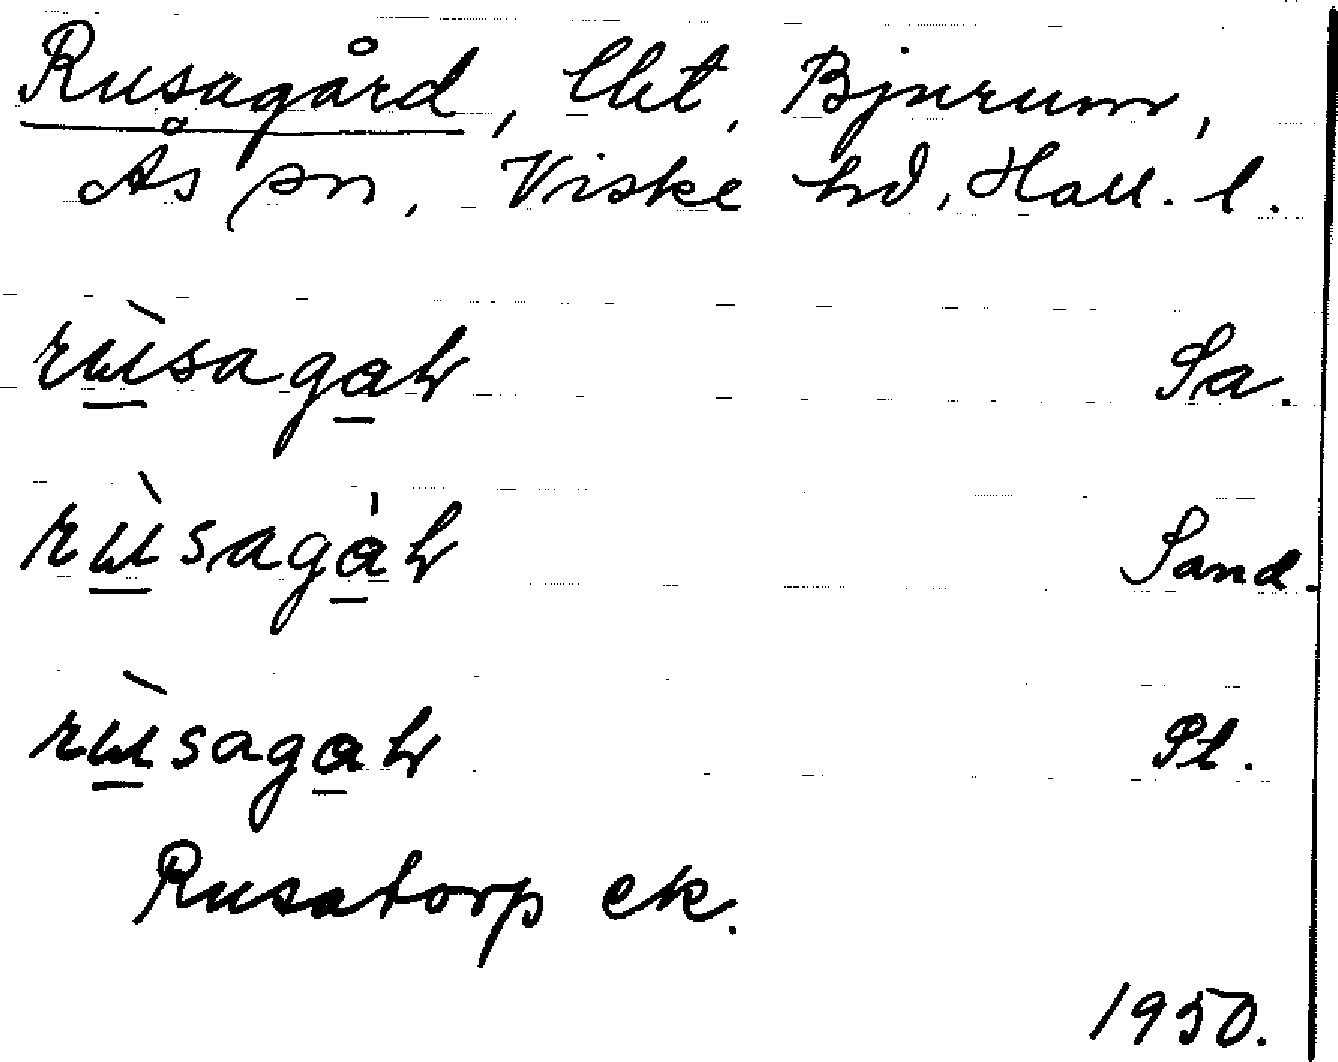 Rusagård, lht, Bjurum,
Ås sn, Viske hd, Hall. l.
rùsagaɽ Sa.
rùsagàɽ Sand.
rùsagaɽ Pl.
Rusatorp ek.
1950.